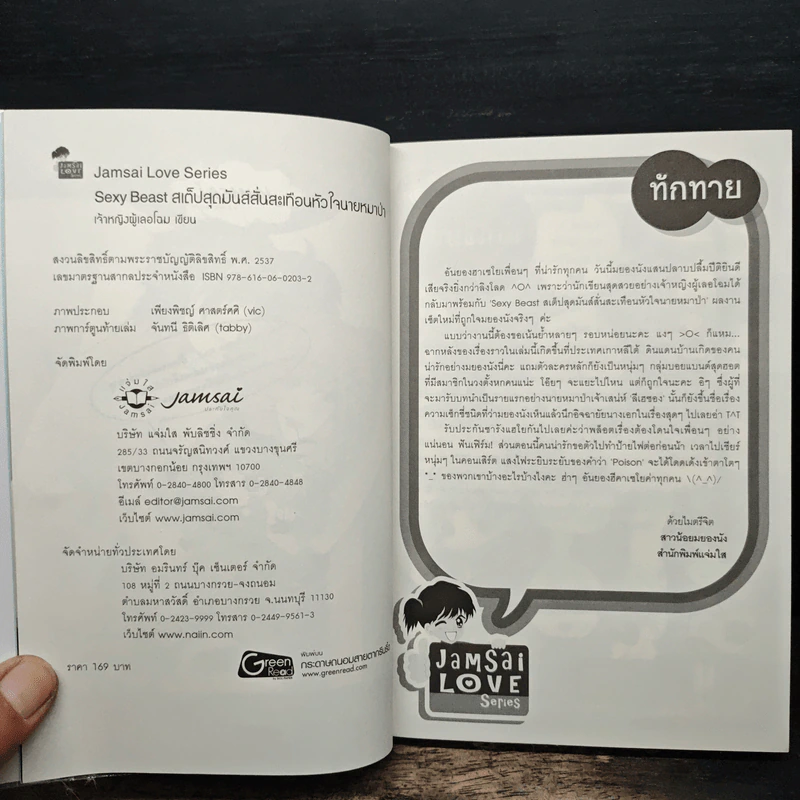 JAMSAI
LOVE
Jamsai Love Series
Sexy Beast สเต็ปสุดมันส์สั่นสะเทือนหัวใจนายหมาป่า
เจ้าหญิงผู้เลอโฉม เขียน
สงวนลิขสิทธิ์ตามพระราชบัญญัติลิขสิทธิ์ พ.ศ. 2537
เลขมาตรฐานสากลประจำหนังสือ ISBN 978-616-06-0203-2
ภาพประกอบ เพียงพิชญ์ ศาสตร์ศศิ (vic)
ภาพการ์ตูนท้ายเล่ม จันทนี ธิติเลิศ (tabby)
จัดพิมพ์โดย
แจ่มใส
Jamsai
Jamsai
บริษัท แจ่มใส พับลิชชิ่ง จำกัด
285/33 ถนนจรัญสนิทวงศ์ แขวงบางขุนศรี
เขตบางกอกน้อย กรุงเทพฯ 10700
โทรศัพท์ 0-2840-4800 โทรสาร 0-2840-4848
อีเมล์ editor@jamsai.com
เว็บไซต์ www.jamsai.com
จัดจำหน่ายทั่วประเทศโดย
บริษัท อมรินทร์ บุ๊ค เซ็นเตอร์ จำกัด
108 หมู่ที่ 2 ถนนบางกรวย-จงถนอม
ตำบลมหาสวัสดิ์ อำเภอบางกรวย จ.นนทบุรี 11130
โทรศัพท์ 0-2423-9999 โทรสาร 0-2449-9561-3
เว็บไซต์ www.naiin.com
ราคา 169 บาท
Green
Read
พิมพ์บน
กระดาษถนอมสายตากรีนรี้ด
www.greenread.com
ทักทาย
อันยองฮาเซโยเพื่อนๆ ที่น่ารักทุกคน วันนี้มยองนังแสนปลาบปลื้มปีติยินดี
เสียจริงยิ่งกว่าลิงโลด ^O^ เพราะว่านักเขียนสุดสวยอย่างเจ้าหญิงผู้เลอโฉมได้
กลับมาพร้อมกับ 'Sexy Beast สเต็ปสุดมันส์สั่นสะเทือนหัวใจนายหมาป่า' ผลงาน
เซ็ตใหม่ที่ถูกใจมยองนังจริงๆ ค่ะ
แบบว่างานนี้ต้องขอเน้นย้ำหลายๆ รอบหน่อยนะคะ แงๆ >O< ก็แหม...
ฉากหลังของเรื่องราวในเล่มนี้เกิดขึ้นที่ประเทศเกาหลีใต้ ดินแดนบ้านเกิดของคน
น่ารักอย่างมยองนังนี่คะ แถมตัวละครหลักก็ยังเป็นหนุ่มๆ กลุ่มบอยแบนด์สุดฮอต
ที่มีสมาชิกในวงตั้งหกคนแน่ะ โอ๊ยๆ จะแยะไปไหน แต่ก็ถูกใจนะคะ อิๆ ซึ่งผู้ที่
จะมารับบทนำเป็นรายแรกอย่างนายหมาป่าเจ้าเสน่ห์ 'ลีเฮซอง' นั้นก็ยังขึ้นชื่อเรื่อง
ความเซ็กซี่ชนิดที่ว่ามยองนังเห็นแล้วนึกอิจฉายัยนางเอกในเรื่องสุดๆ ไปเลยอ่า TAT
รับประกันซารังแฮโยกันไปเลยค่ะว่าพล็อตเรื่องต้องโดนใจเพื่อนๆ อย่าง
แน่นอน ฟันเฟิร์ม! ส่วนตอนนี้คนน่ารักขอตัวไปทำป้ายไฟต่อก่อนน้า เวลาไปเชียร์
หนุ่มๆ ในคอนเสิร์ต แสงไฟระยิบระยับของคำว่า 'Poison' จะได้โดดเด้งเข้าตาโตๆ
*_* ของพวกเขาบ้างอะไรบ้างไงคะ ฮ่าๆ อันยองฮีคาเซโยค่าทุกคน \(^_^)/
ด้วยไมตรีจิต
สาวน้อยมยองนัง
สำนักพิมพ์แจ่มใส
JAMSAI
LOVE
Series